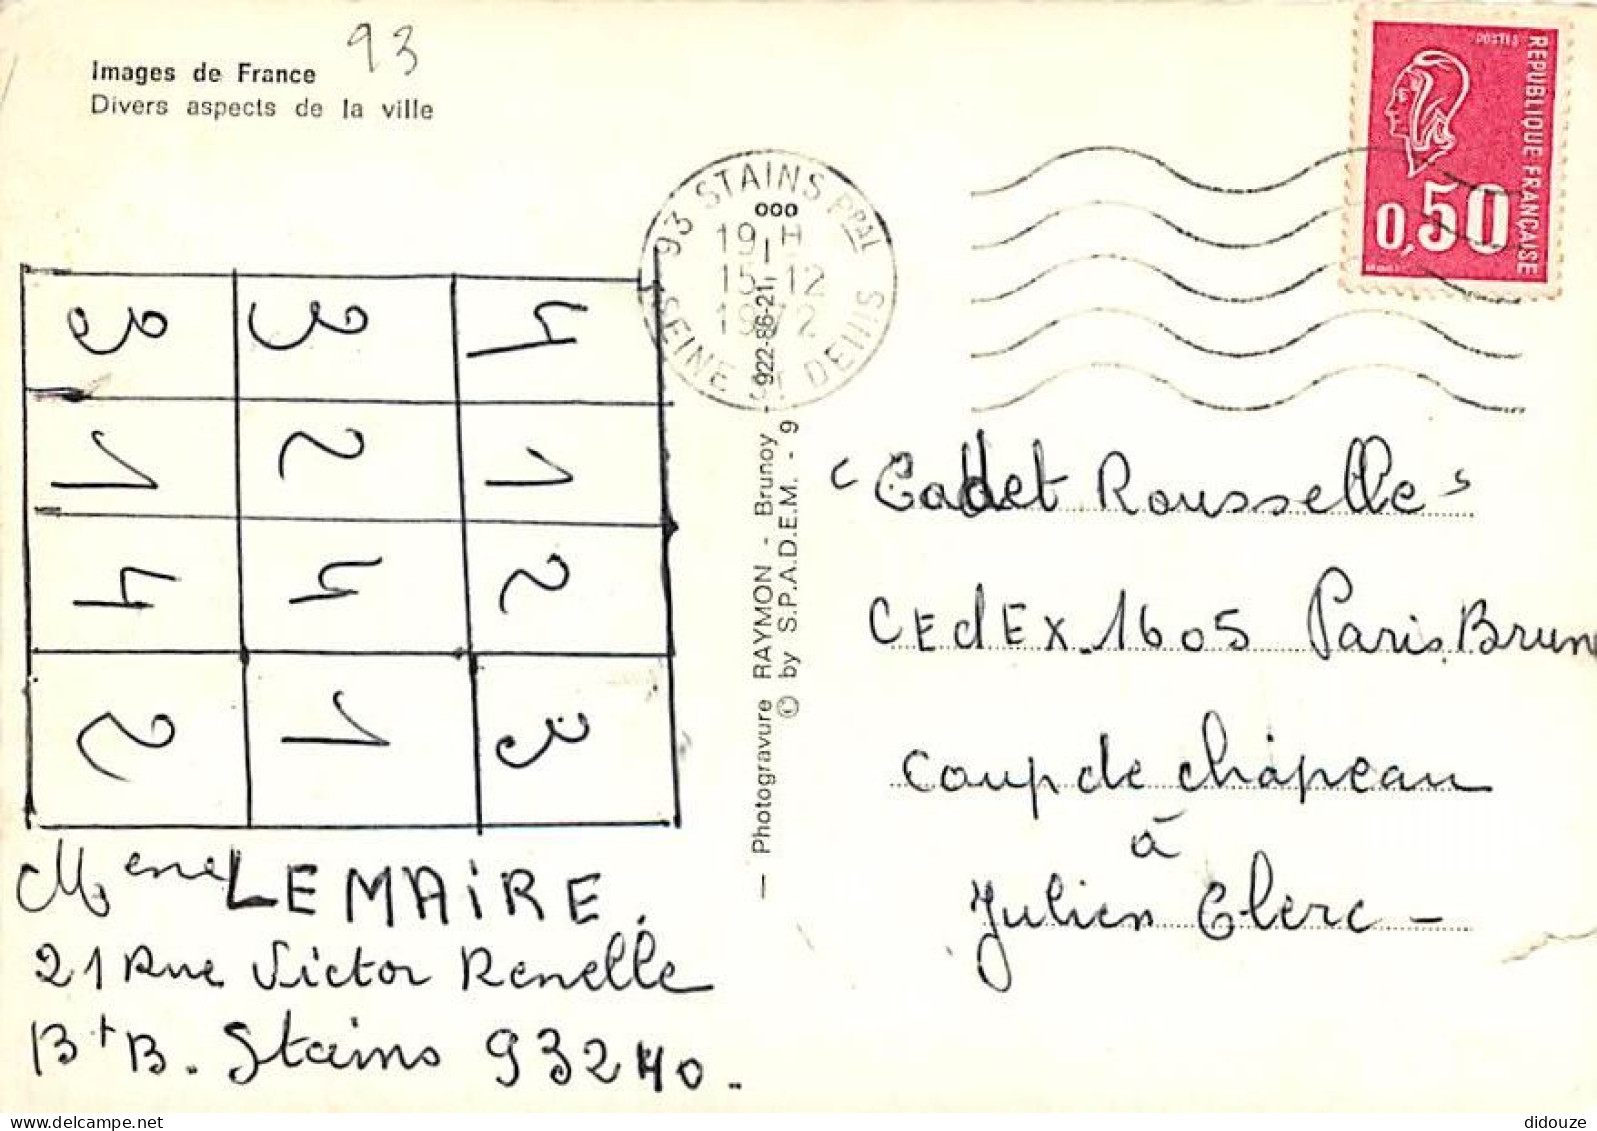 93
Images de France
Divers aspects de la ville
REPUBLIQUE FRANÇAISE
POSTES
0,50
93 STAINS PPAL
SEINE ST DENIS
19 H
15-12
1972
ooo
922-86-21
— Photogravure RAYMON - Brunoy
© by S.P.A.D.E.M. - 9
3 3 4
1 2 1
4 4 2
2 1 3
Meme LEMAIRE.
21 Rue Victor Renelle
Bt B. Stains 93240.
"Cadet Rousselle"
CEdEX.1605 Paris Brun
Coup de chapeau
à
Julien Clerc -
didouze
delcampe.net